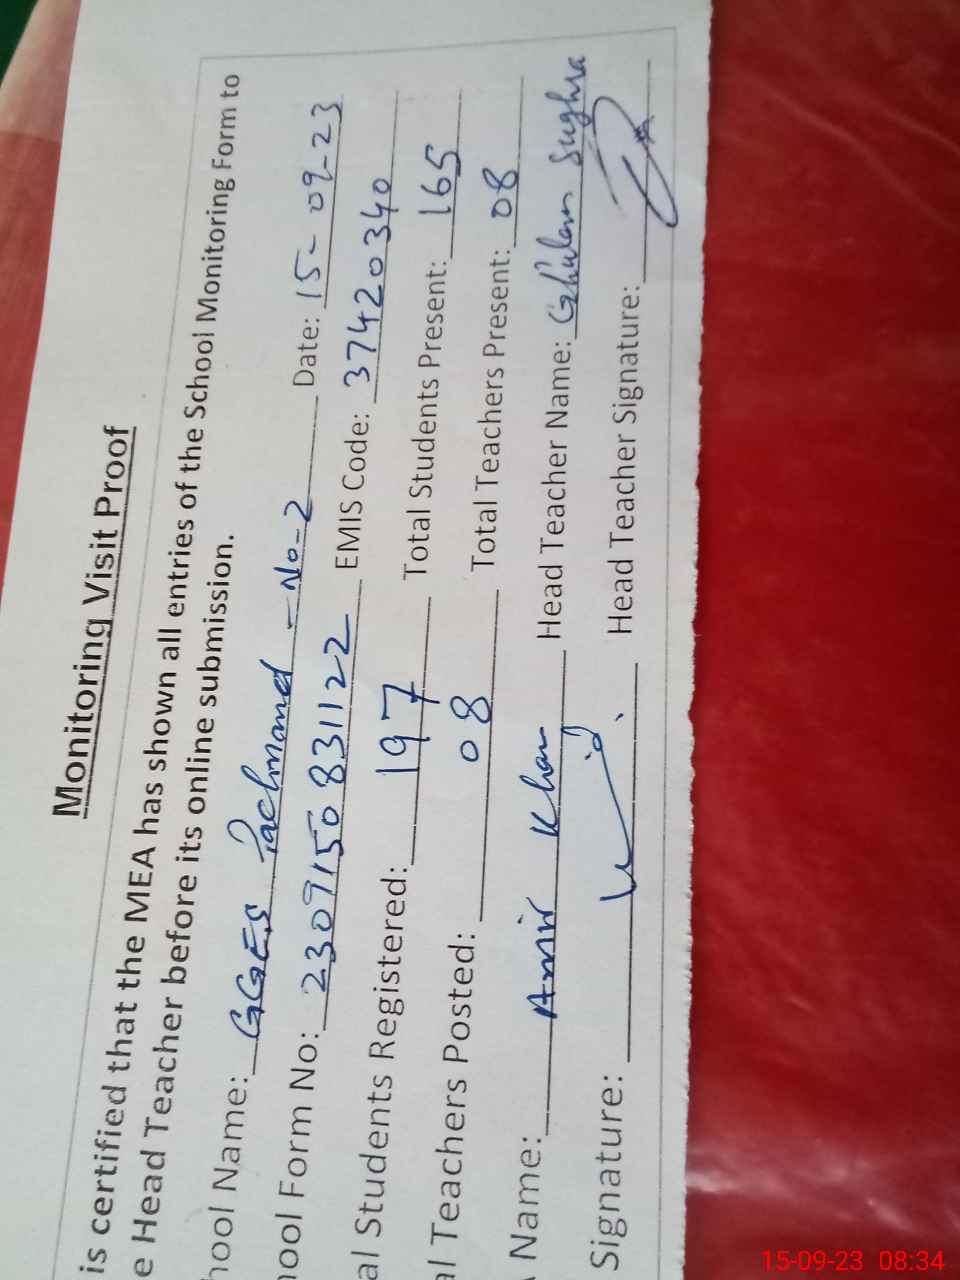 Monitoring Visit Proof
is certified that the MEA has shown all entries of the School Monitoring Form to
e Head Teacher before its online submission.
hool Name: GGES Pachnand - No-2 Date: 15-09-23
hool Form No: 2309150831122 EMIS Code: 37420340
al Students Registered: 197 Total Students Present: 165
al Teachers Posted: 08 Total Teachers Present: 08
Name: Amir Khan Head Teacher Name: Ghulam Sughra
Signature: Head Teacher Signature:
15-09-23 08:34